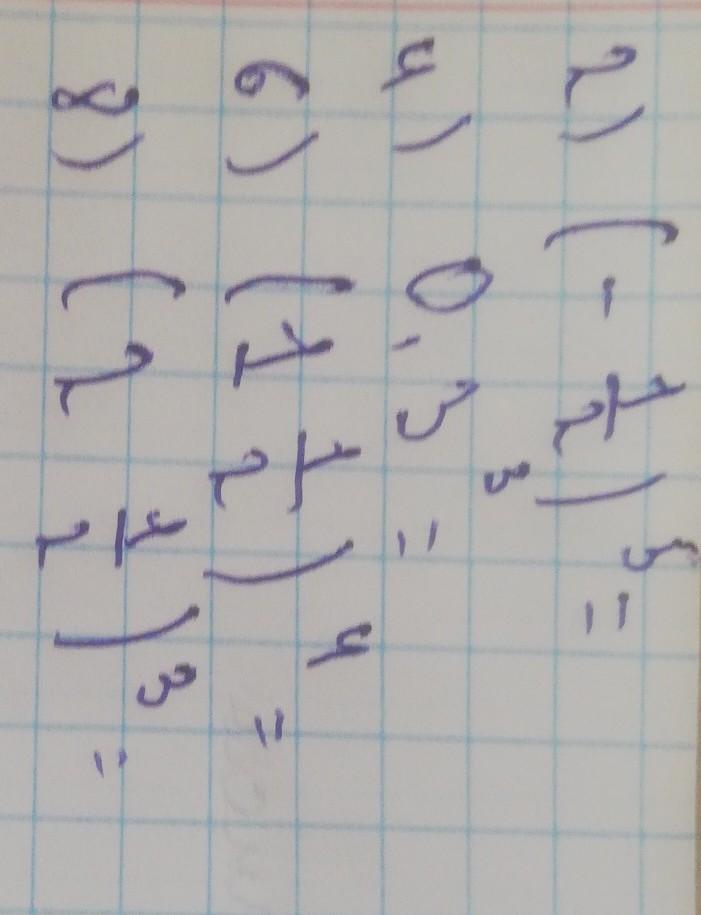 2) (-1/2)^5 =
4) 0,3^3 =
6) (1 1/2)^4 =
8) (2 1/2)^3 =